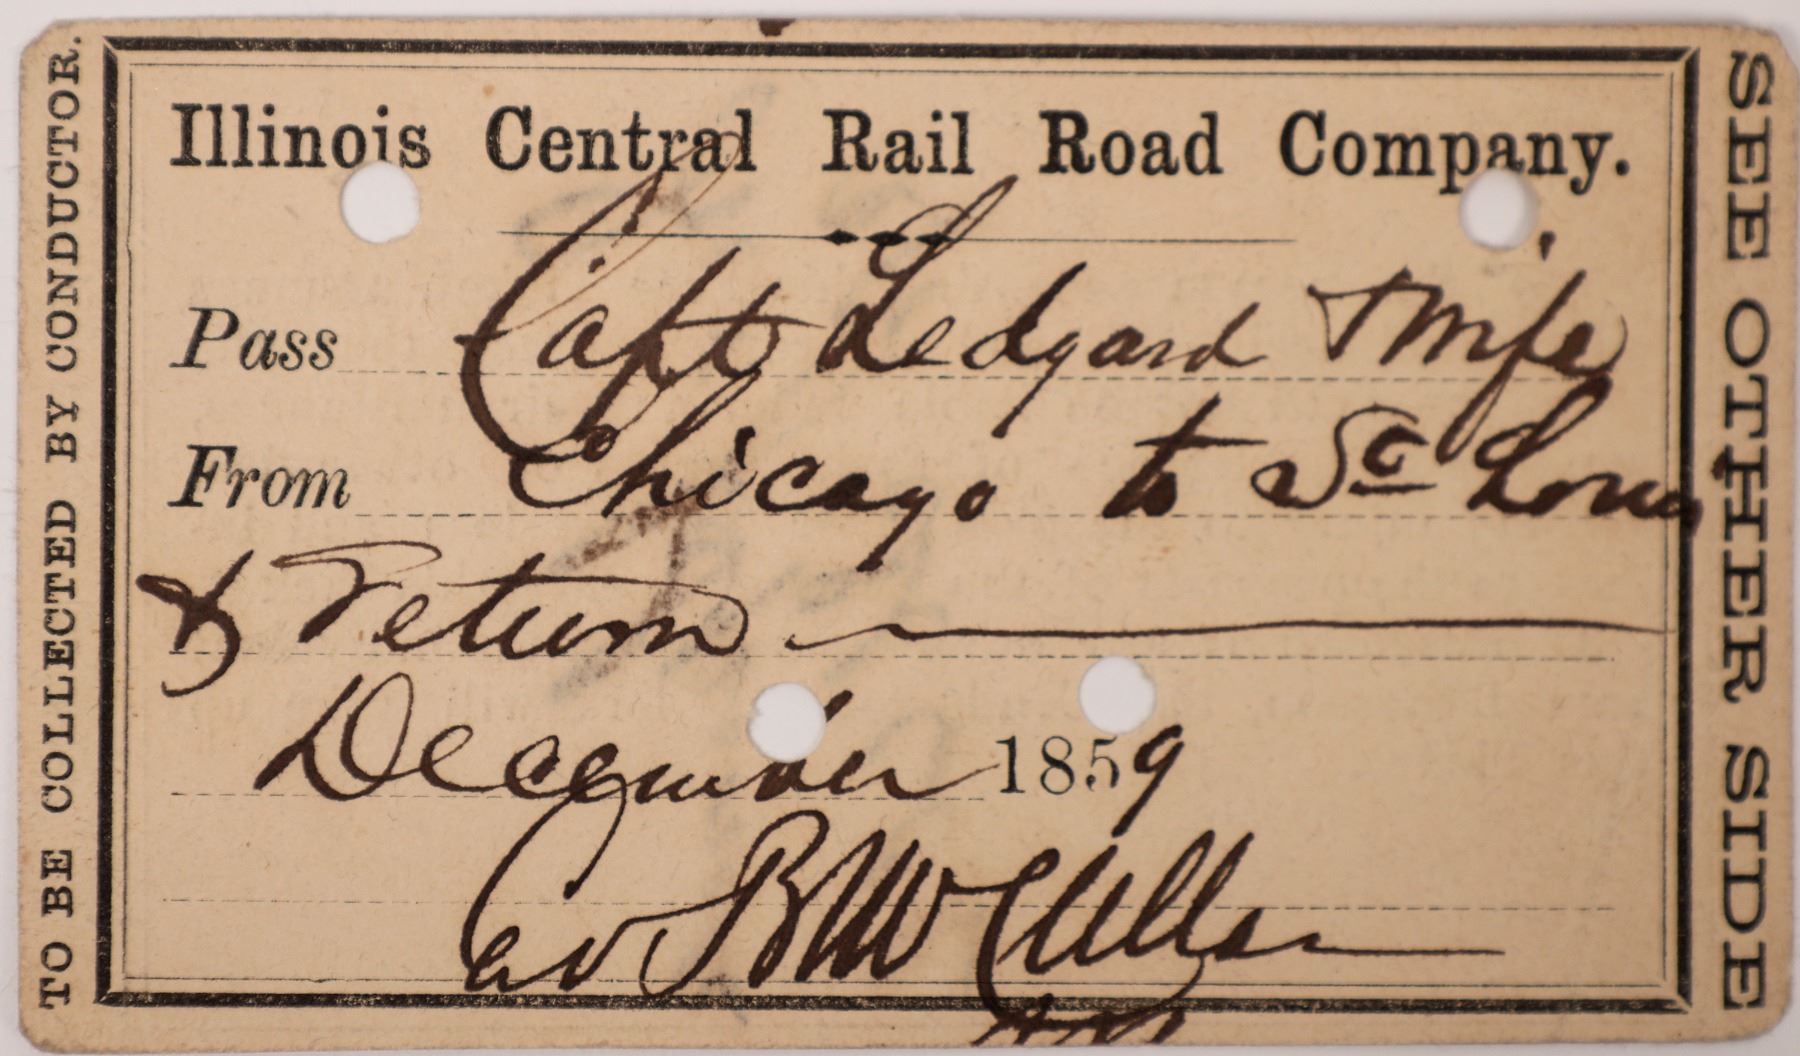 Illinois Central Rail Road Company.
Pass Capt Ledyard & Wife
From Chicago to St Louis
& Return
December 1859
Geo B McClellan
TO BE COLLECTED BY CONDUCTOR.
SEE OTHER SIDE